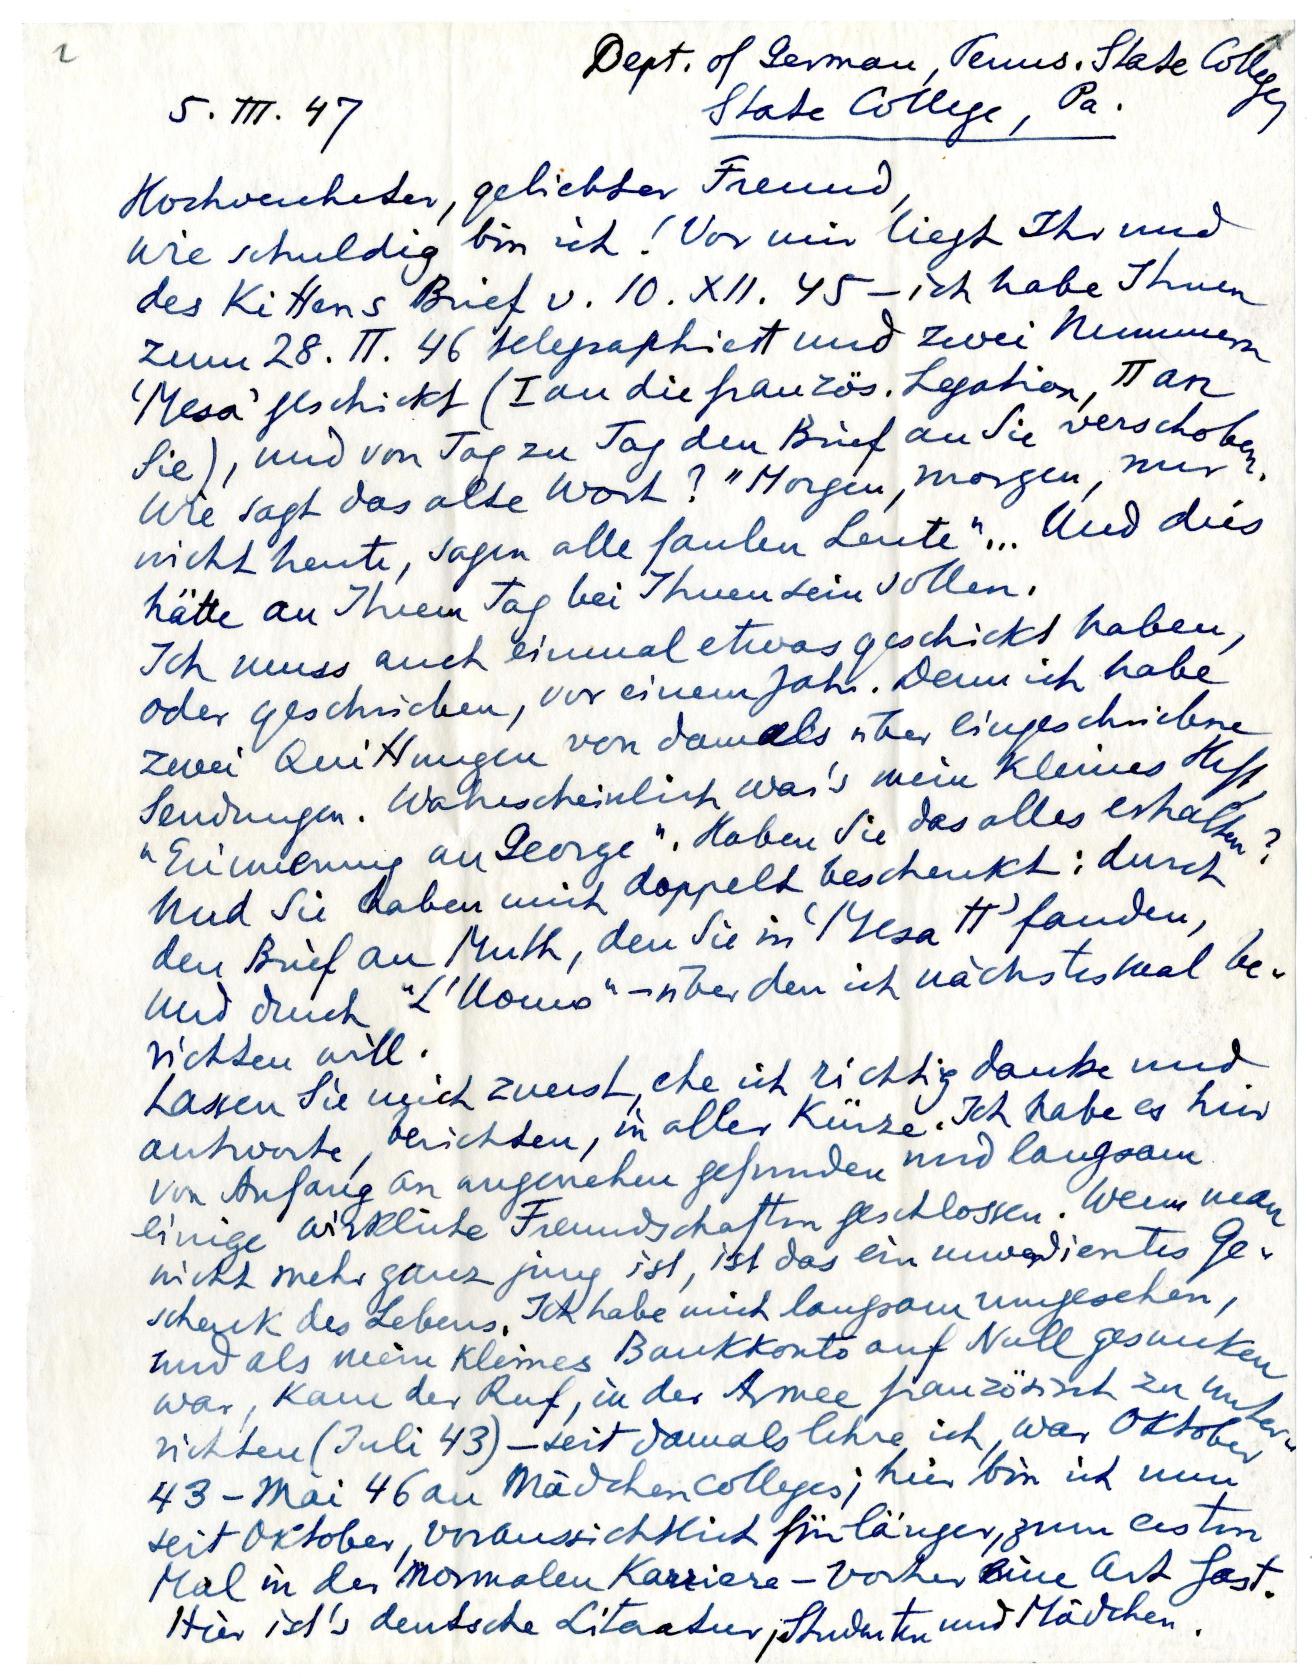 1
Dept. of German, Penns. State College,
State College, Pa.
5. III. 47
Hochverehrter, geliebter Freund,
wie schuldig bin ich! Vor mir liegt Ihr und
des Kittens Brief v. 10. XII. 45 – ich habe Ihnen
zum 28. II. 46 telegraphiert und zwei Nummern
'Mesa' geschickt (I an die französ. Legation, II an
Sie), und von Tag zu Tag den Brief an Sie verschoben.
Wie sagt das alte Wort? "Morgen, morgen, nur
nicht heute, sagen alle faulen Leute"... Und dies
hätte an Ihrem Tag bei Ihnen sein sollen.
Ich muss auch einmal etwas geschickt haben,
oder geschrieben, vor einem Jahr. Denn ich habe
zwei Quittungen von damals über eingeschriebene
Sendungen. Wahrscheinlich war's mein kleines Heft
"Erinnerung an George". Haben Sie das alles erhalten?
Und Sie haben mich doppelt beschenkt: durch
den Brief an Muth, den Sie in 'Mesa II' fanden,
und durch "L'Uomo" – über den ich nächstesmal be-
richten will.
Lassen Sie mich zuerst, ehe ich richtig danke und
antworte, berichten, in aller Kürze. Ich habe es hier
von Anfang an angenehm gefunden und langsam
einige wirkliche Freundschaften geschlossen. Wenn man
nicht mehr ganz jung ist, ist das ein unverdientes Ge-
schenk des Lebens. Ich habe mich langsam umgesehen,
und als mein kleines Bankkonto auf Null gesunken
war, kam der Ruf, in der Armee französisch zu unter-
richten (Juli 43) – seit damals lehre ich, war Oktober
43 – Mai 46 an Mädchencolleges; hier bin ich nun
seit Oktober, voraussichtlich für länger, zum ersten
Mal in der normalen Karriere – vorher eine Art Gast.
Hier ist's deutsche Literatur, Studenten und Mädchen.